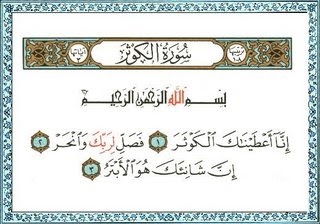 سُورَةُ الْكَوْثَر
بِسْمِ اللَّهِ الرَّحْمَٰنِ الرَّحِيمِ
إِنَّآ أَعْطَيْنَٰكَ ٱلْكَوْثَرَ ١ فَصَلِّ لِرَبِّكَ وَٱنْحَرْ ٢
إِنَّ شَانِئَكَ هُوَ ٱلْأَبْتَرُ ٣